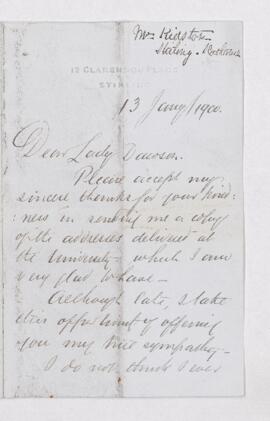 Mr Kidston
Stirling
12 CLARENDON PLACE
STIRLING
13 Jany/1900.
Dear Lady Dawson.
Please accept my
sincere thanks for your kind:
:ness in sending me a copy
of the addresses delivered at
the University - which I am
very glad to have -
Although late, I take
this opportunity of offering
you my true sympathy -
I do not think I ever